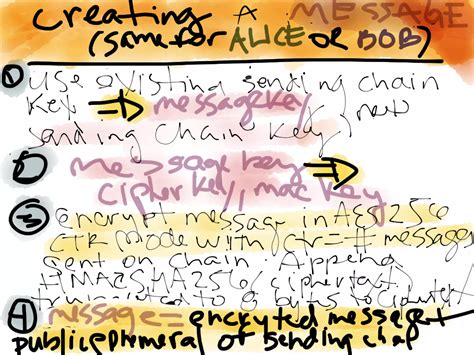 creating A MESSAGE
(same for ALICE or BOB)
1 use existing sending chain
key ⇒ message key / new
sending chain key
2 message key ⇒
cipher key, mac key
3 encrypt message in AES256
CTR mode with ctr = # messages
sent on chain Append
HMACSHA256 / ciphertext
truncated to 8 bytes to ciphertext
4 message = encrypted message +
public ephemeral of sending chai